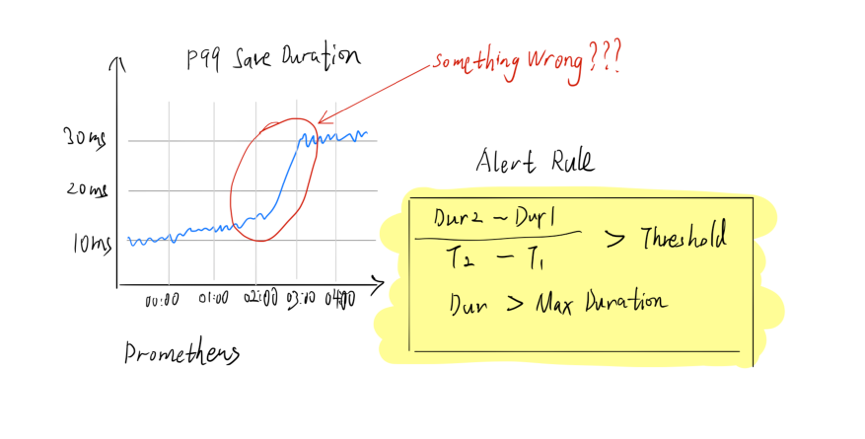 P99 Save Duration
Something Wrong???
30ms
20ms
10ms
00:00 01:00 02:00 03:00 04:00
Prometheus
Alert Rule
Dur2 - Dur1
T2 - T1
> Threshold
Dur > Max Duration